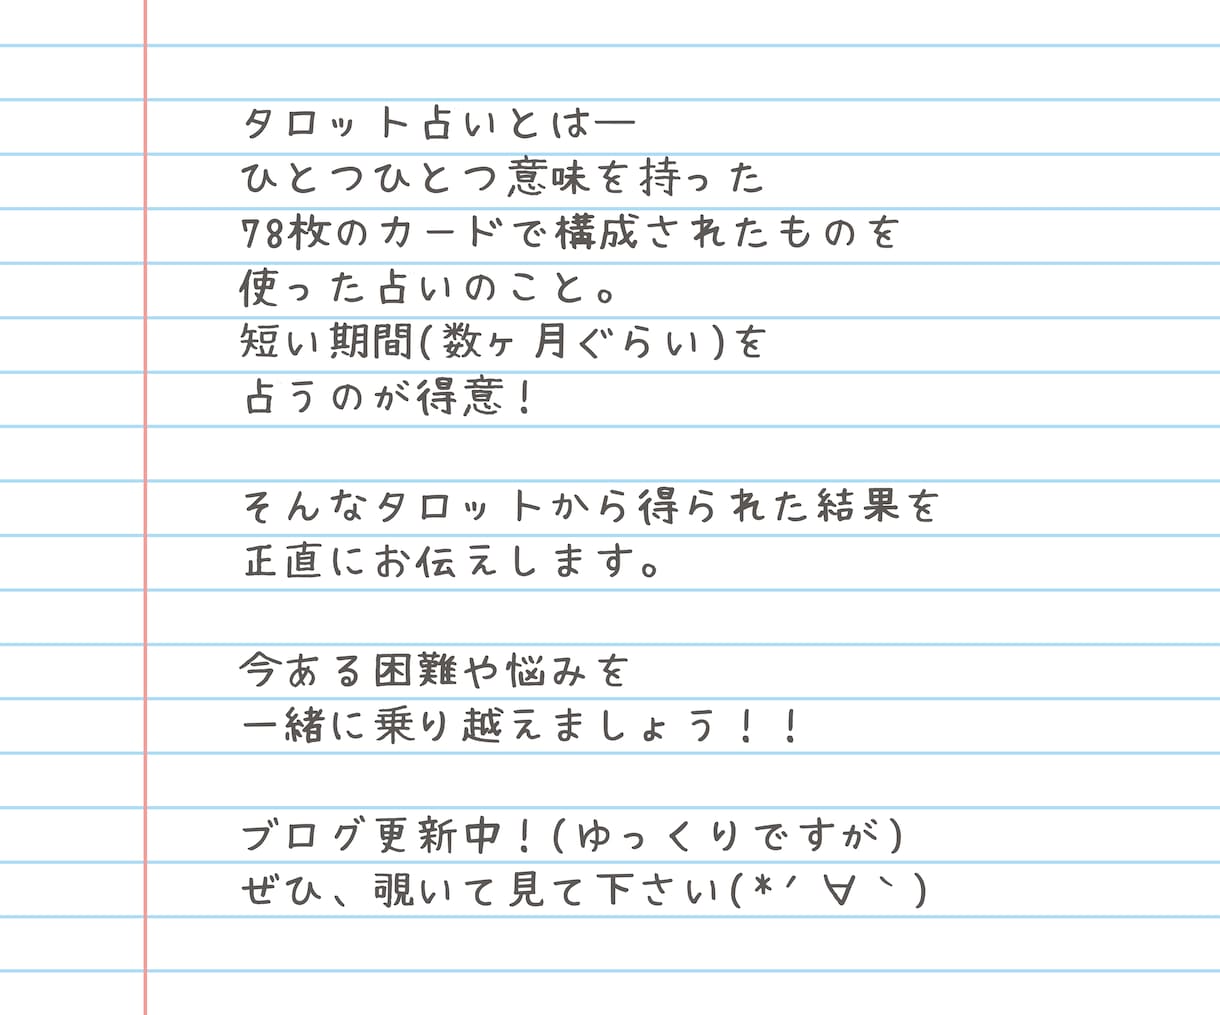 タロット占いとは―
ひとつひとつ意味を持った
78枚のカードで構成されたものを
使った占いのこと。
短い期間(数ヶ月ぐらい)を
占うのが得意！
そんなタロットから得られた結果を
正直にお伝えします。
今ある困難や悩みを
一緒に乗り越えましょう！！
ブログ更新中！(ゆっくりですが)
ぜひ、覗いて見て下さい(*´∀｀)